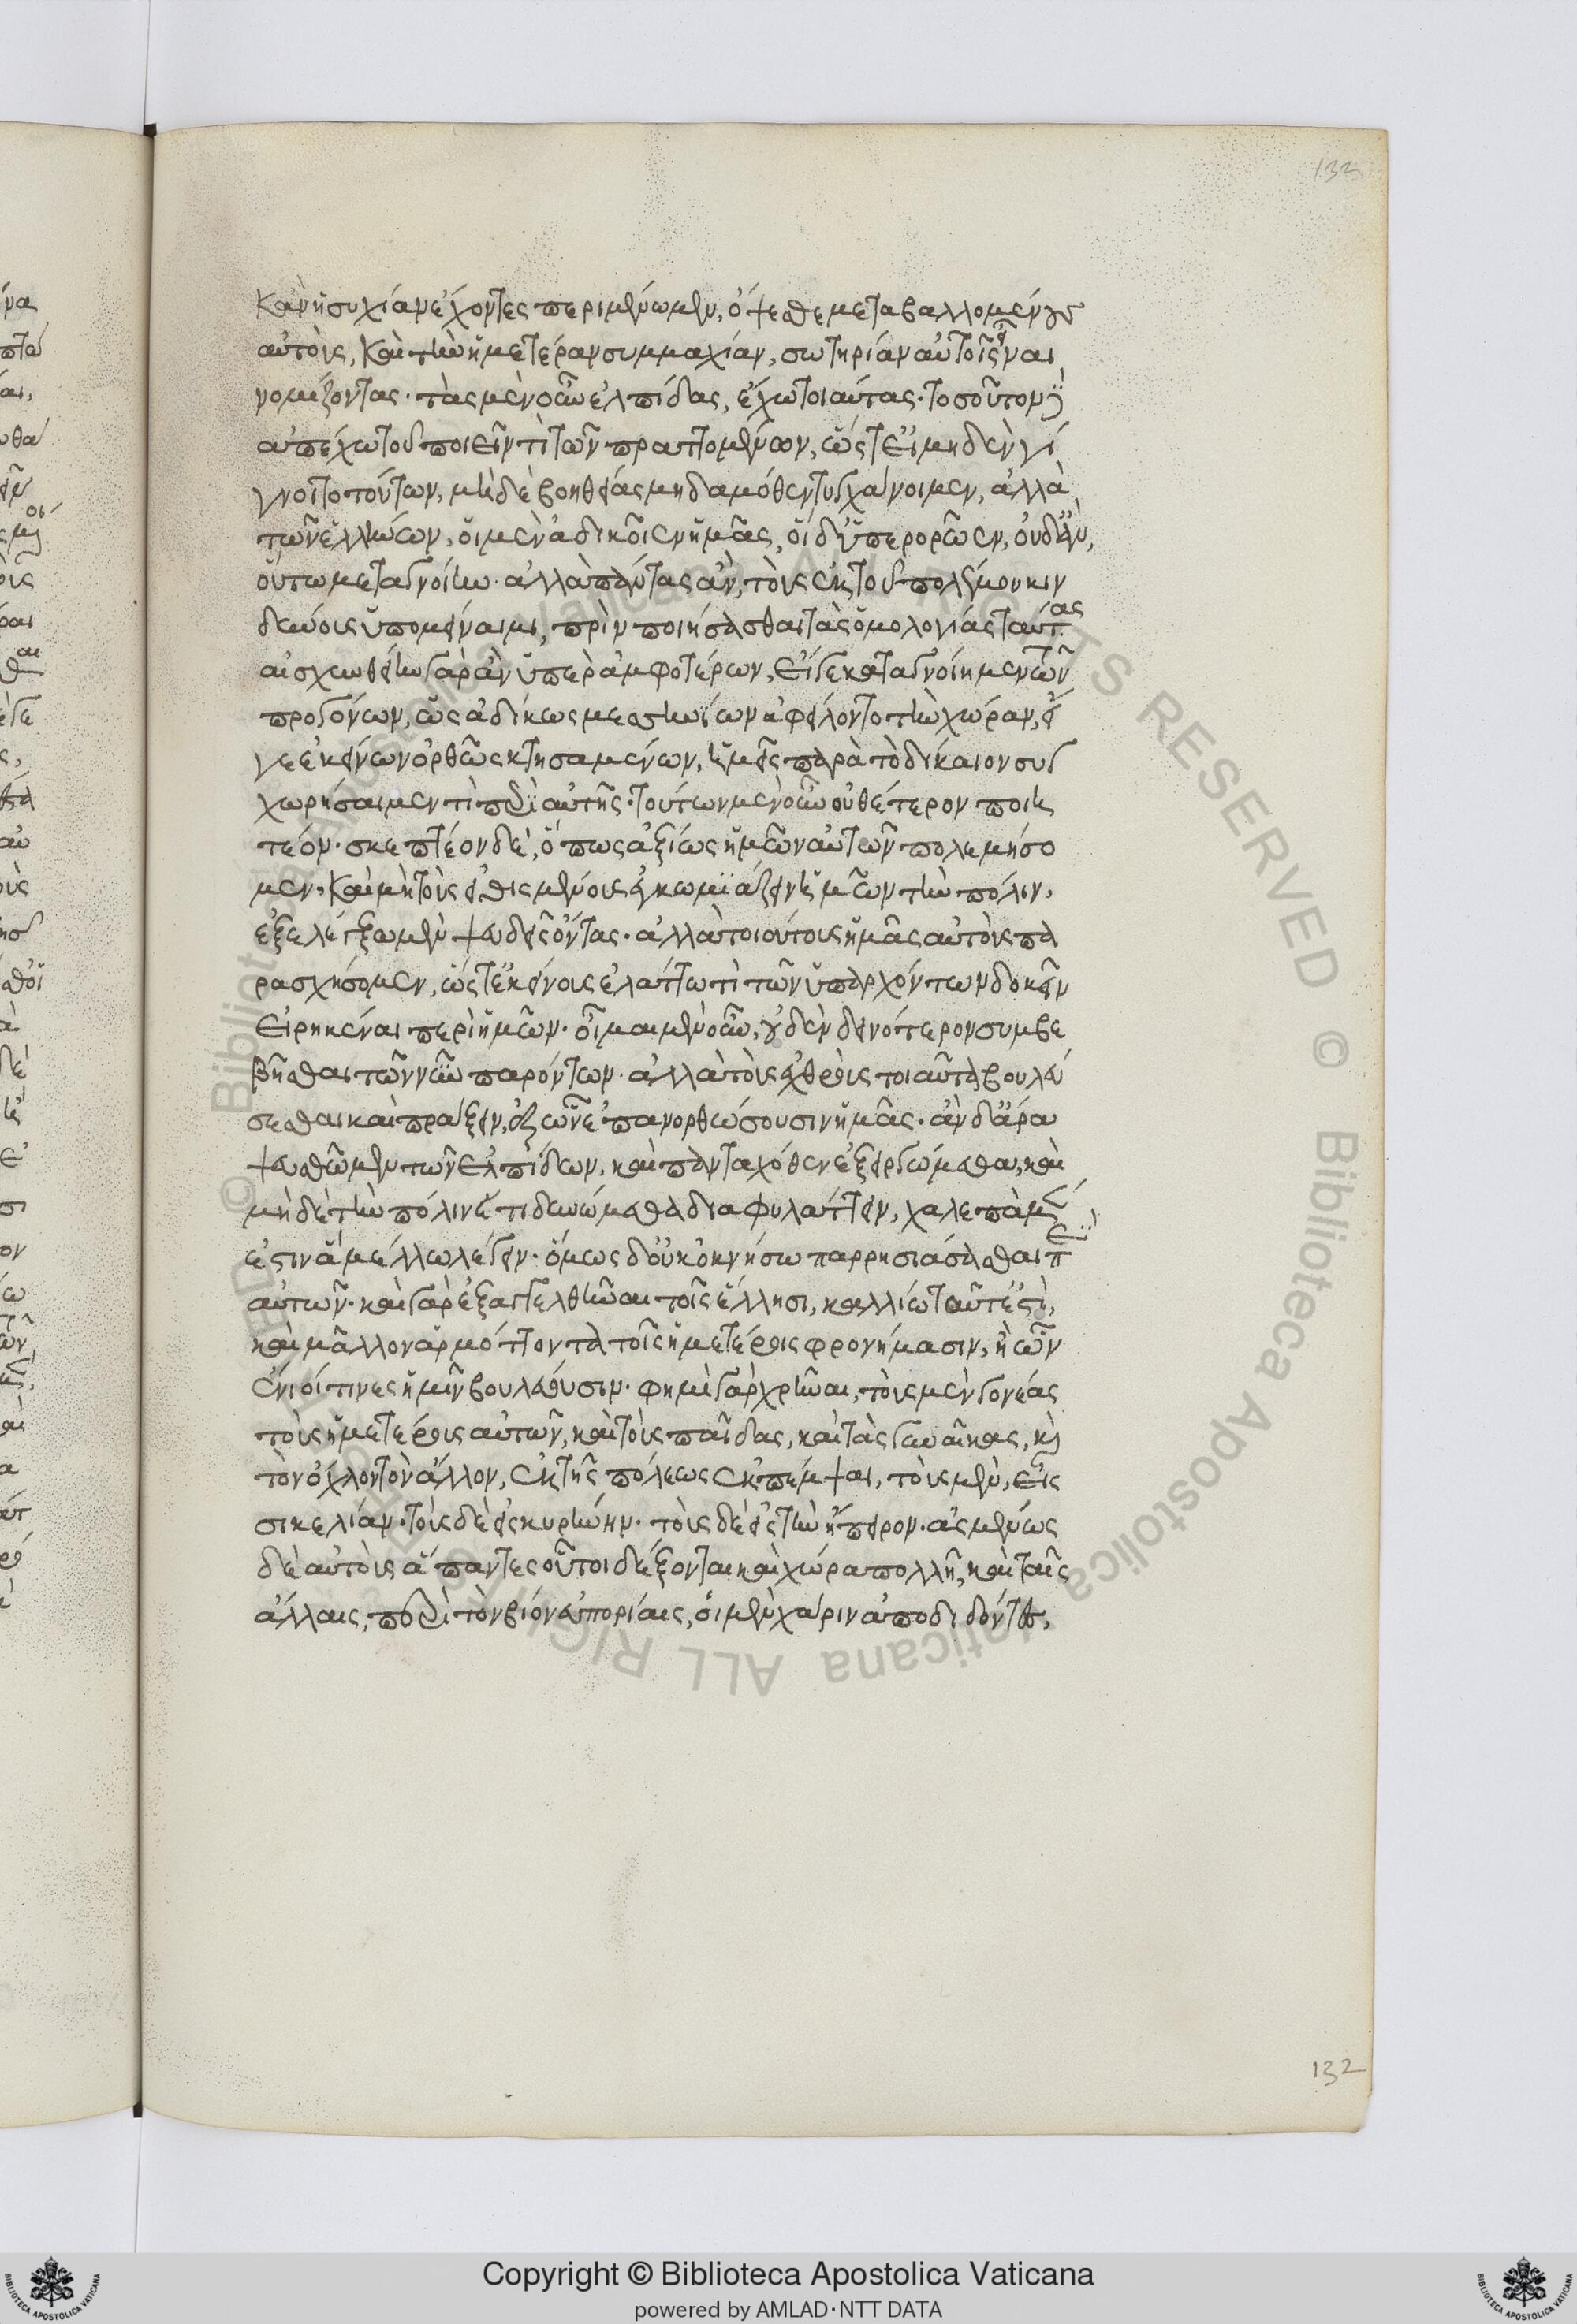 132
κἂν ἡσυχίαν ἔχοντες περιμένωμεν, ὄψεσθε μεταβαλλομένους
αὐτοὺς, καὶ τὴν ἡμετέραν συμμαχίαν, σωτηρίαν αὐτοῖς εἶναι
νομίζοντας· τὰς μὲν οὖν ἐλπίδας, ἔχω τοιαύτας· τοσοῦτον δὲ
ἀπέχω τοῦ ποιεῖν τὶ τῶν πραττομένων, ὥστ' εἰ μηδὲν γί
γνοιτο τούτων, μὴ δὲ βοηθείας μηδαμόθεν τυγχάνοιμεν, ἀλλὰ
τῶν ἑλλήνων, οἱ μὲν ἀδικοῖεν ἡμᾶς, οἱ δ' ὑπερορῶεν, οὐδ' ἂν,
οὕτω μεταγνοίην· ἀλλὰ πάντας ἂν, τοὺς ἐκ τοῦ πολέμου κιν
δύνους ὑπομείναιμι, πρὶν ποιήσασθαι τὰς ὁμολογίας ταύτας
αἰσχυνθείην γὰρ ἂν ὑπὲρ ἀμφοτέρων, εἴτε καταγνοίημεν τῶν
προγόνων, ὡς ἀδίκως μεσηνίων ἀφείλοντο τὴν χώραν, εἴ
γε ἐκείνων ὀρθῶς κτησαμένων, ἡμεῖς παρὰ τὸ δίκαιον συγ
χωρήσαιμεν τὶ περὶ αὐτῆς· τούτων μὲν οὖν οὐθέτερον ποιη
τέον· σκεπτέον δὲ, ὅπως ἀξίως ἡμῶν αὐτῶν πολεμήσο
μεν· καὶ μὴ τοὺς εἰθισμένους ἐγκωμιάζειν ἡμῶν τὴν πόλιν,
ἐξελέγξωμεν ψευδεῖς ὄντας· ἀλλὰ τοιούτους ἡμᾶς αὐτοὺς πα
ρασχήσομεν, ὥστ' ἐκείνοις ἐλάττω τὶ τῶν ὑπαρχόντων δοκεῖν
εἰρηκέναι περὶ ἡμῶν· οἶμαι μὲν οὖν, οὐδὲν δεινότερον συμβε
βῆσθαι τῶν νῦν παρόντων· ἀλλὰ τοὺς ἐχθροὺς τοιαῦτα βουλεύ
σεσθαι καὶ πράξειν, ἐξ ὧν ἐπανορθώσουσιν ἡμᾶς· ἂν δ' ἄρα
ψευσθῶμεν τῶν ἐλπίδων, καὶ πανταχόθεν ἐξειργώμεσθα, καὶ
μηδὲ τὴν πόλιν ἔτι δυνώμεσθα διαφυλάττειν, χαλεπὰ μὲν
ἐστιν ἃ μέλλω λέγειν· ὅμως δ' οὐκ ὀκνήσω παρρησιάσασθαι περὶ
αὐτῶν· καὶ γὰρ ἐξαγγελθῆναι τοῖς ἕλλησι, καλλίω ταῦτ' ἐστὶ,
καὶ μᾶλλον ἁρμόττοντα τοῖς ἡμετέροις φρονήμασιν, ἢ ὧν
ἔνιοί τινες ἡμῖν βουλεύουσιν· φημὶ γὰρ χρῆναι, τοὺς μὲν γονέας
τοὺς ἡμετέρους αὐτῶν, καὶ τοὺς παῖδας, καὶ τὰς γυναῖκας, καὶ
τὸν ὄχλον τὸν ἄλλον, ἐκ τῆς πόλεως ἐκπέμψαι, τοὺς μὲν, εἰς
σικελίαν· τοὺς δὲ εἰς κυρήνην· τοὺς δὲ εἰς τὴν ἤπειρον· ἀσμένως
δὲ αὐτοὺς ἅπαντες οὗτοι δέξονται καὶ χώρα πολλῇ, καὶ ταῖς
ἄλλαις, περὶ τὸν βίον εὐπορίαις, οἱ μὲν χάριν ἀποδιδόντες,
132
© Biblioteca Apostolica Vaticana ALL RIGHTS RESERVED
Copyright © Biblioteca Apostolica Vaticana
powered by AMLAD·NTT DATA